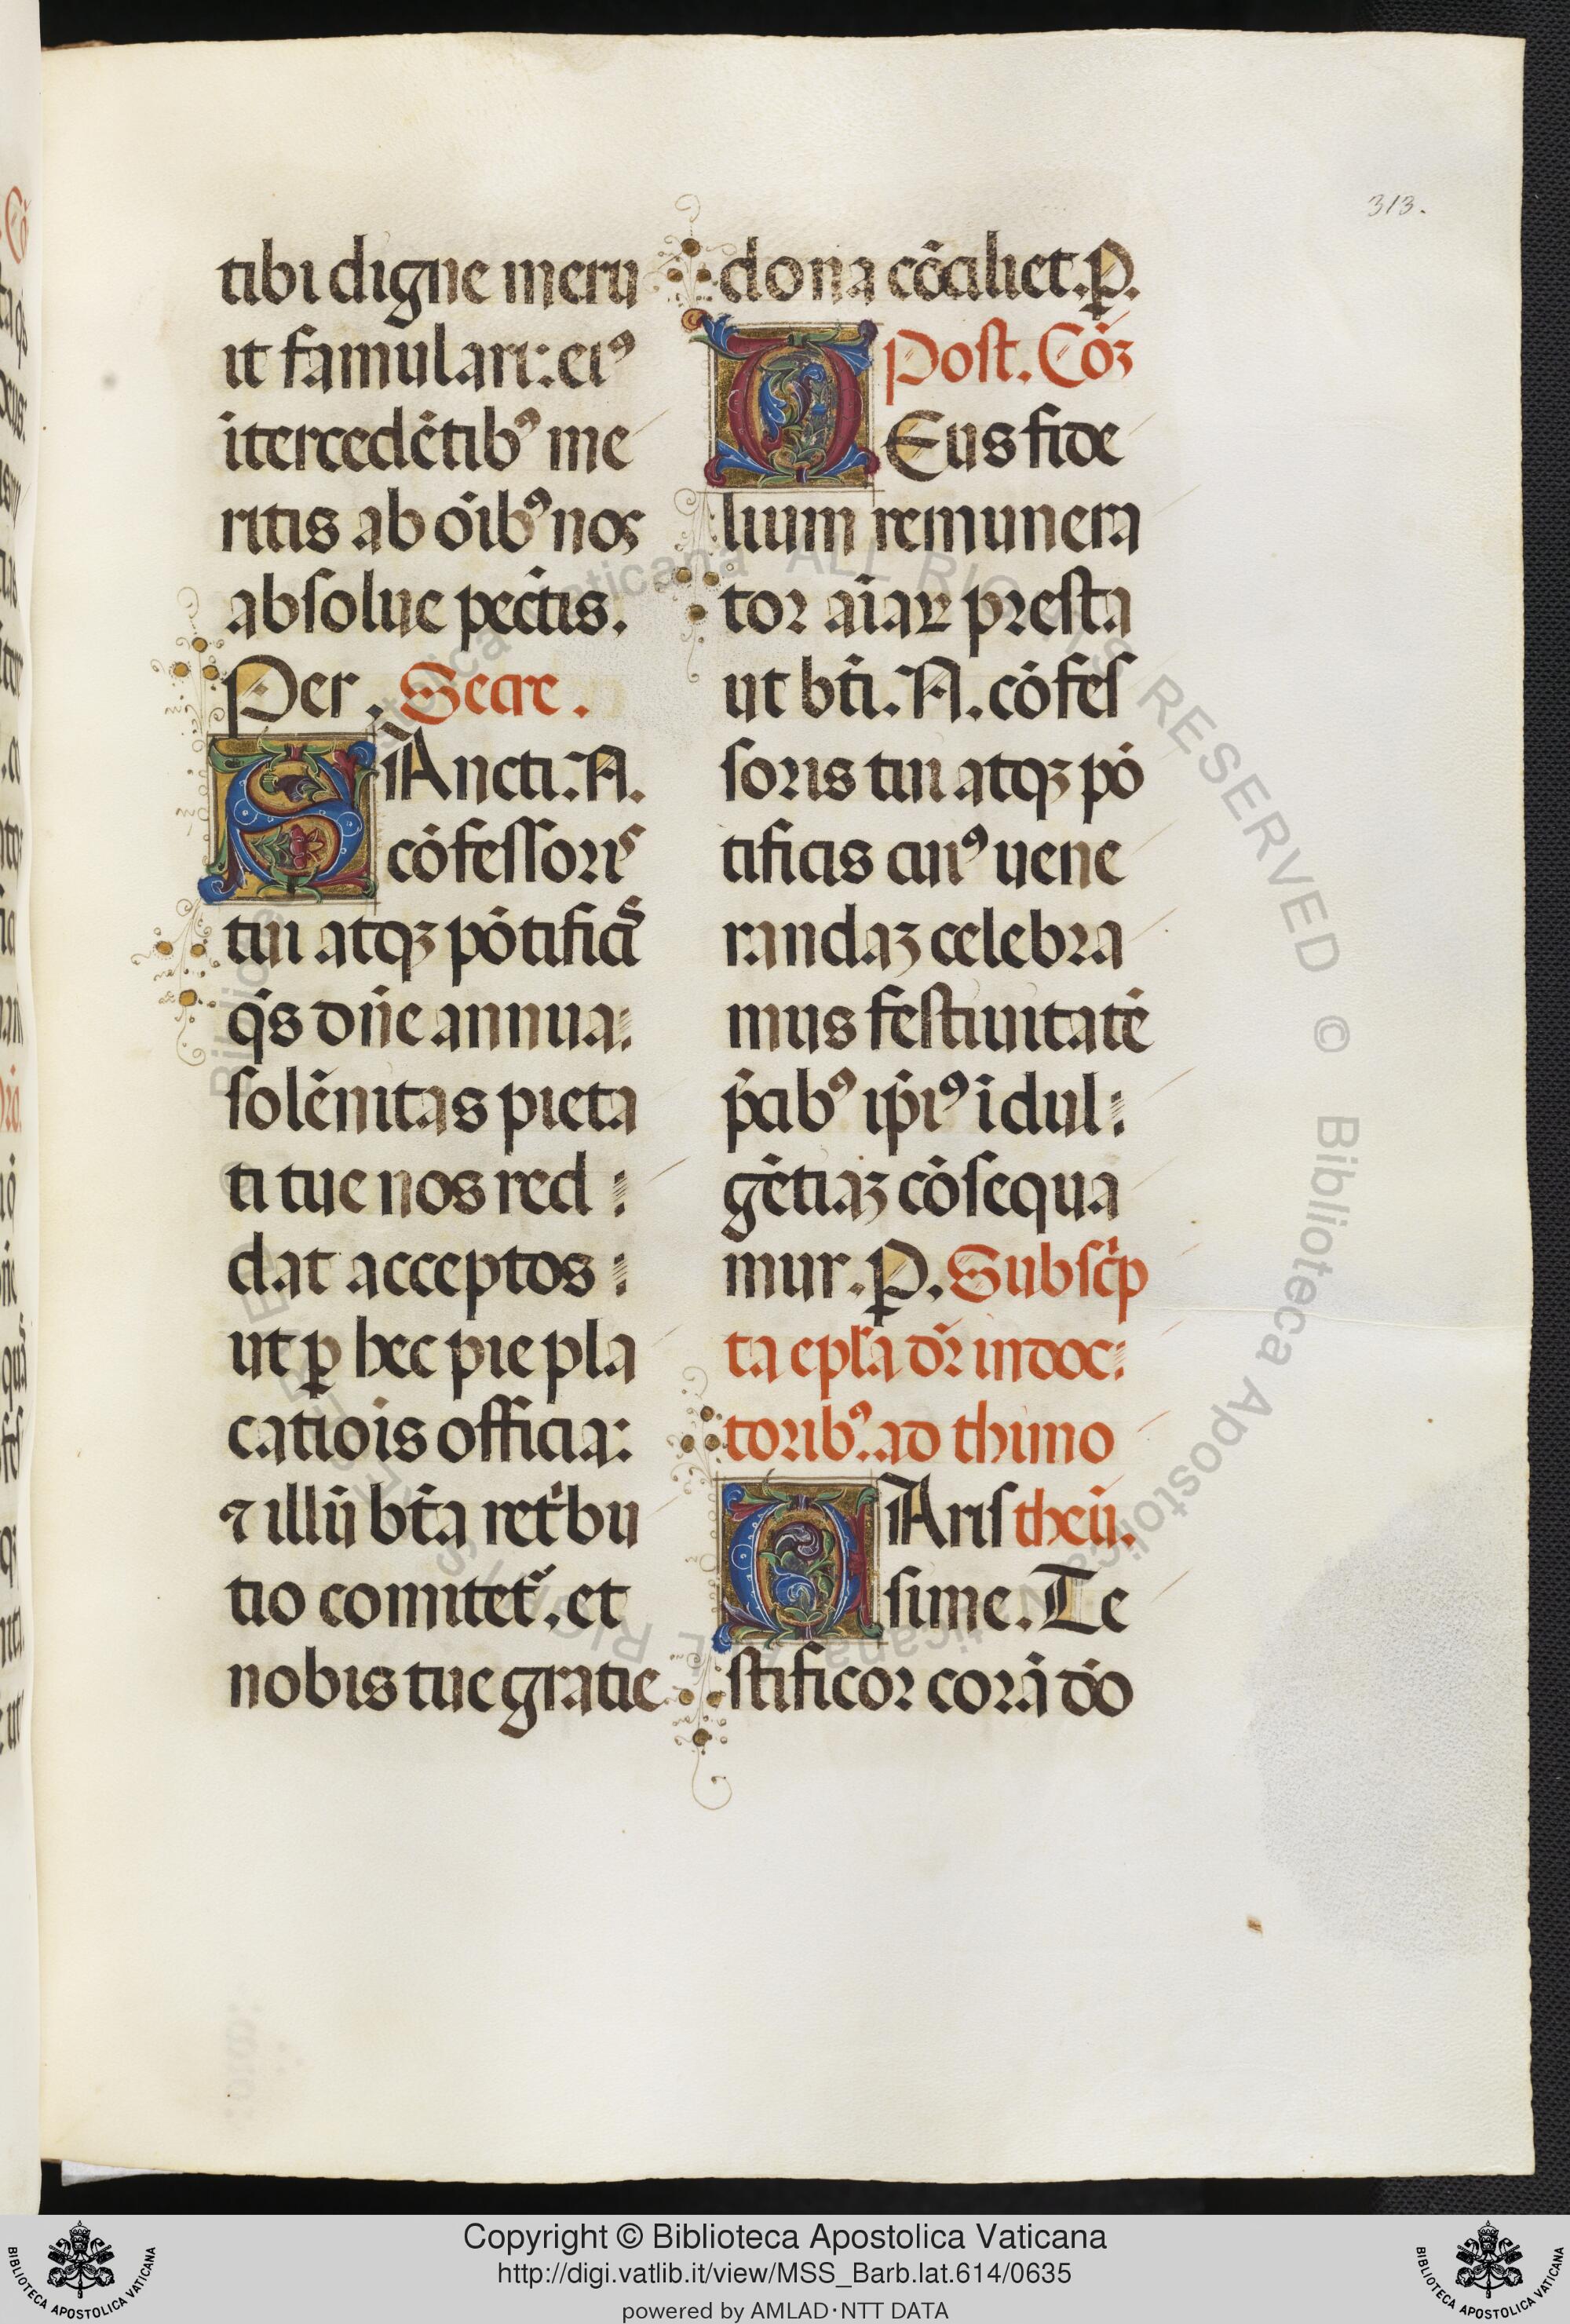 313.
tibi digne meru
it famulari: eiꝰ
ītercedētibꝰ me
ritis ab oībꝰ nos
absolue pecc̄tis.
Per. Secre.
SAncti. N.
cōfessoris
tui atqꝫ pōtificis
q̄s dn̄e annua:
solēnitas pieta
ti tue nos red :
dat acceptos :
ut ꝑ hec pie pla
catiōis officia:
⁊ illū bt̄a ret'bu
tio comitet᷑. et
nobis tue gratie
dona cōciliet. P.
Post. Cōꝫ
DEus fide
lium remunera
tor aīaꝝ presta
ut bt̄i. N. cōfes
soris tui atqꝫ pō
tificis cuiꝰ uene
randaꝫ celebra
mus festiuitatē
p̄cibꝰ ip̄iꝰ īdul:
gētiaꝫ cōsequa
mur. P. Subsc'p
ta epl̄a dr̄ in doc:
toribꝰ. ad thimo
CAris theū.
sime. Te
stificor corā dō
Copyright © Biblioteca Apostolica Vaticana
http://digi.vatlib.it/view/MSS_Barb.lat.614/0635
powered by AMLAD·NTT DATA
BIBLIOTECA APOSTOLICA VATICANA
BIBLIOTECA APOSTOLICA VATICANA
Biblioteca Apostolica Vaticana ALL RIGHTS RESERVED ©